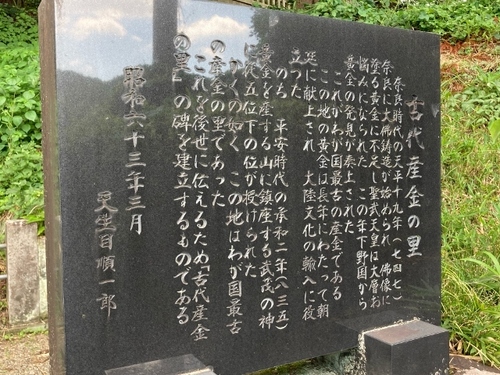 古代産金の里
奈良時代の天平十九年(七四七)
奈良に大佛鋳造が始められ 佛像に
塗る黄金に不足し聖武天皇は大層お
悩みになられた この年下野国から
黄金の発見が奏上された
これがわが国最古の産金である
この地の黄金は長年にわたって朝
廷に献上され 大陸文化の輸入に役
立った
のち 平安時代の承和二年(八三五)
黄金を産する山に鎮座する武茂の神
に従五位下の位が授けられた
かくの如く この地はわが国最古
の産金の里であった
これを後世に伝えるため「古代産金
の里」の碑を建立するものである
昭和六十三年三月
目順一郎